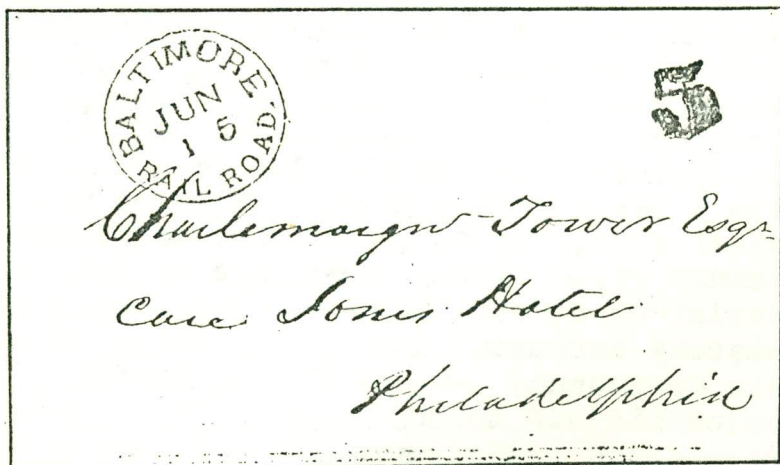 BALTIMORE
JUN
15
RAIL ROAD.
5
Charlemagne Tower Esqr
care Jones Hotel
Philadelphia